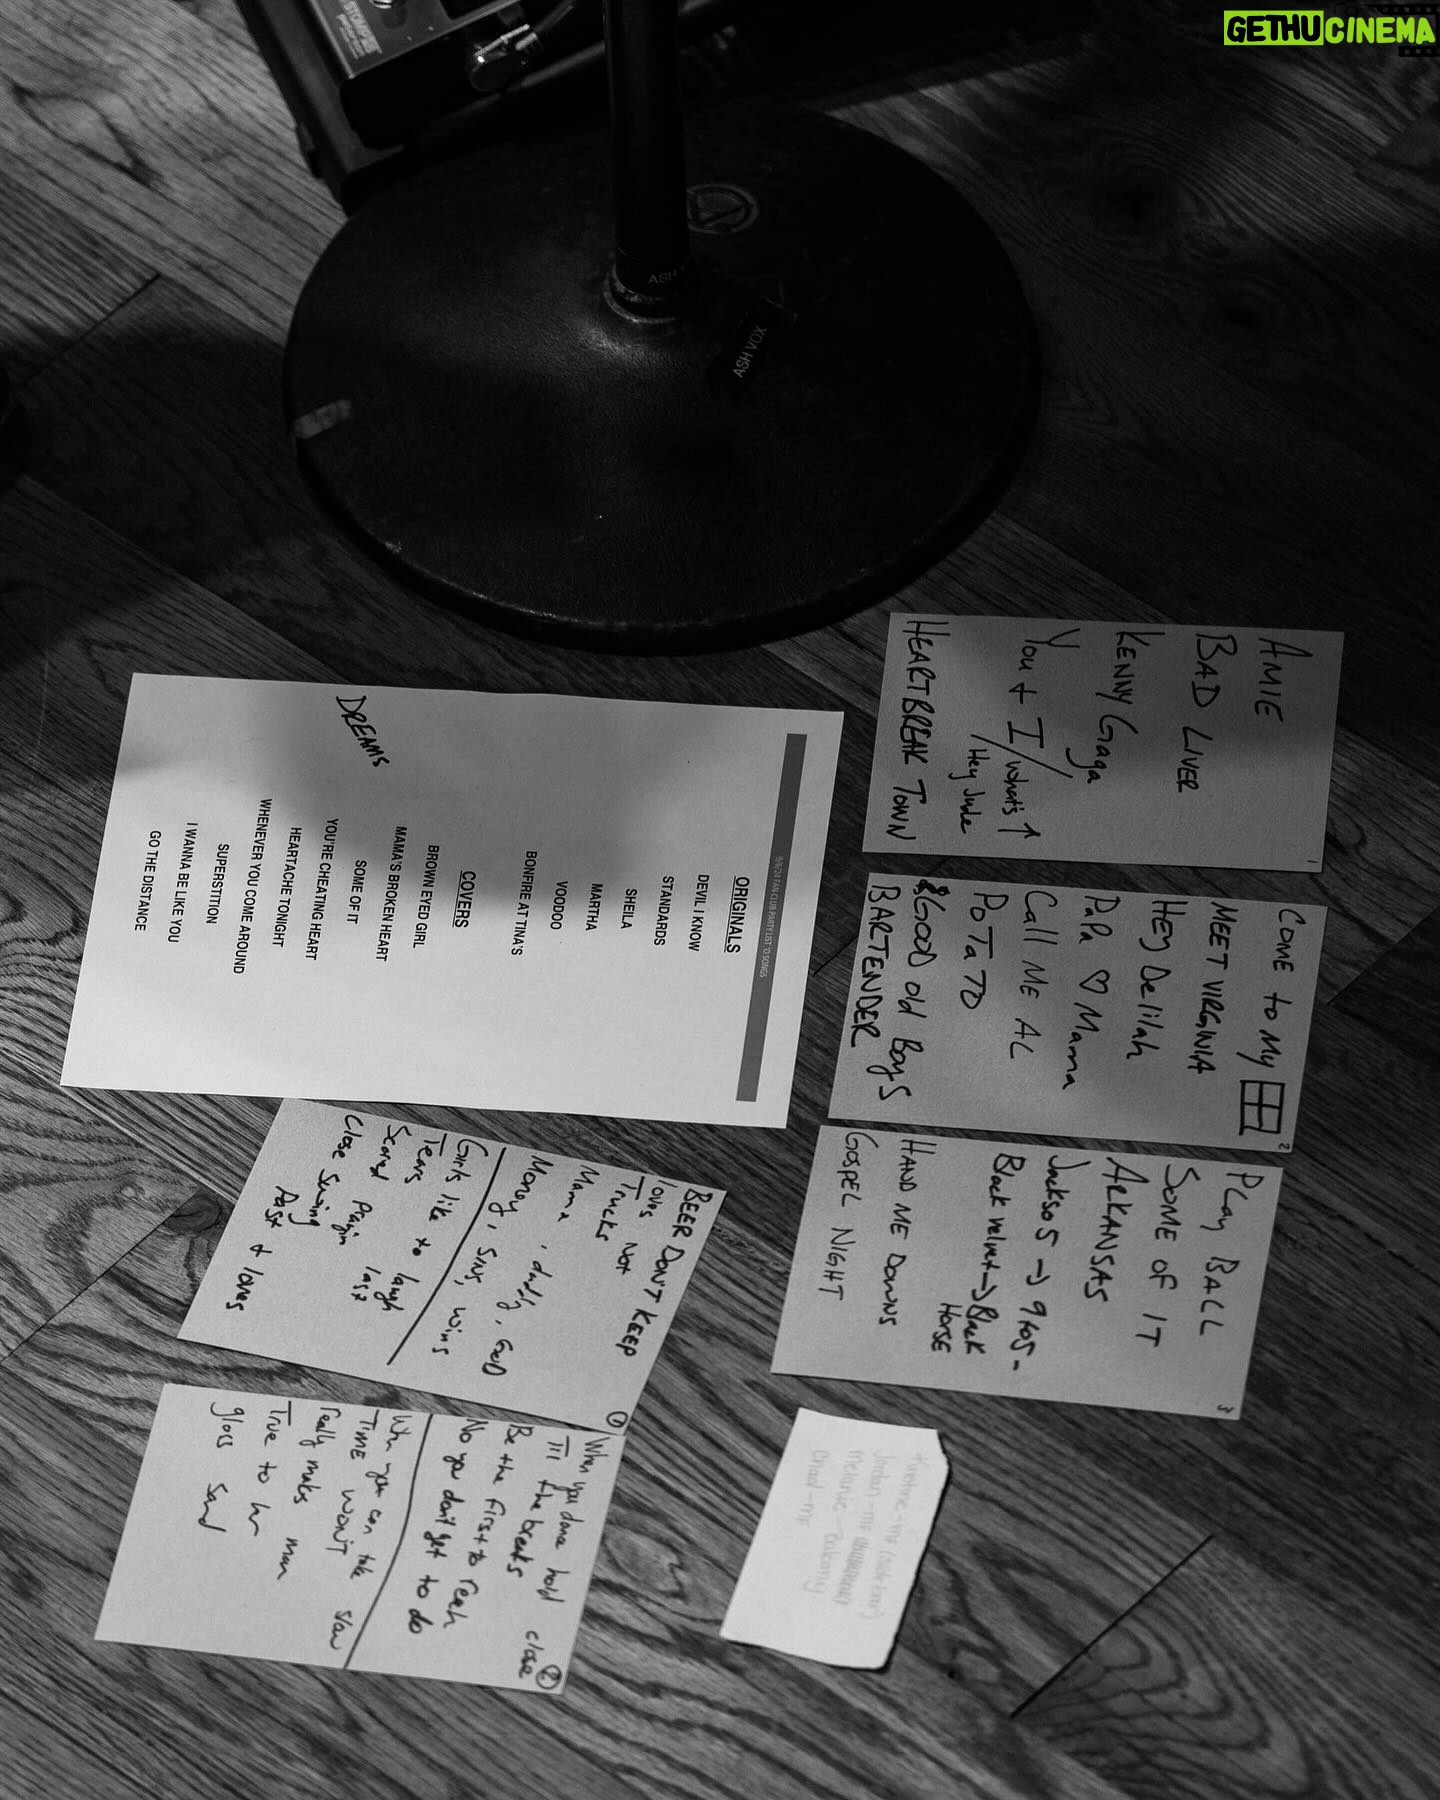 GETHUCINEMA
ASH VOX
ASH V
AMIE
BAD LIVER
KENNY Gaga
You + I / what's ↑
Hey Jude
HEARTBREAK TOWN
1
COME to My
MEET VIRGINIA
Hey Delilah
PaPa ♡ Mama
Call ME AL
PoTaTO
&Good old Boys
BARTENDER
2
PLay BALL
SOME OF IT
ARKANSAS
Jackso 5 → 9to5 -
Black velvet → Black
HORSE
HAND ME DOWNS
GOSPEL NIGHT
3
9/6/24 FAN CLUB PARTY LIST 'O SONGS
ORIGINALS
DEVIL I KNOW
STANDARDS
SHEILA
MARTHA
VOODOO
BONFIRE AT TINA'S
COVERS
BROWN EYED GIRL
MAMA'S BROKEN HEART
SOME OF IT
YOU'RE CHEATING HEART
HEARTACHE TONIGHT
WHENEVER YOU COME AROUND
SUPERSTITION
I WANNA BE LIKE YOU
GO THE DISTANCE
DREAMS
BEER DON'T KEEP
1
loves Not
Trucks
Mama, daddy, God
Money, sins, wins
Girls like to laugh
Tears
Second last
close swing
Past + loves
When you dance hold close
2
Til the breaks
Be the first to reach
No you don't get to do
When you can take
TIME WON'T slow
really makes man
True to her
glass sand
melanie -
Chad - mf